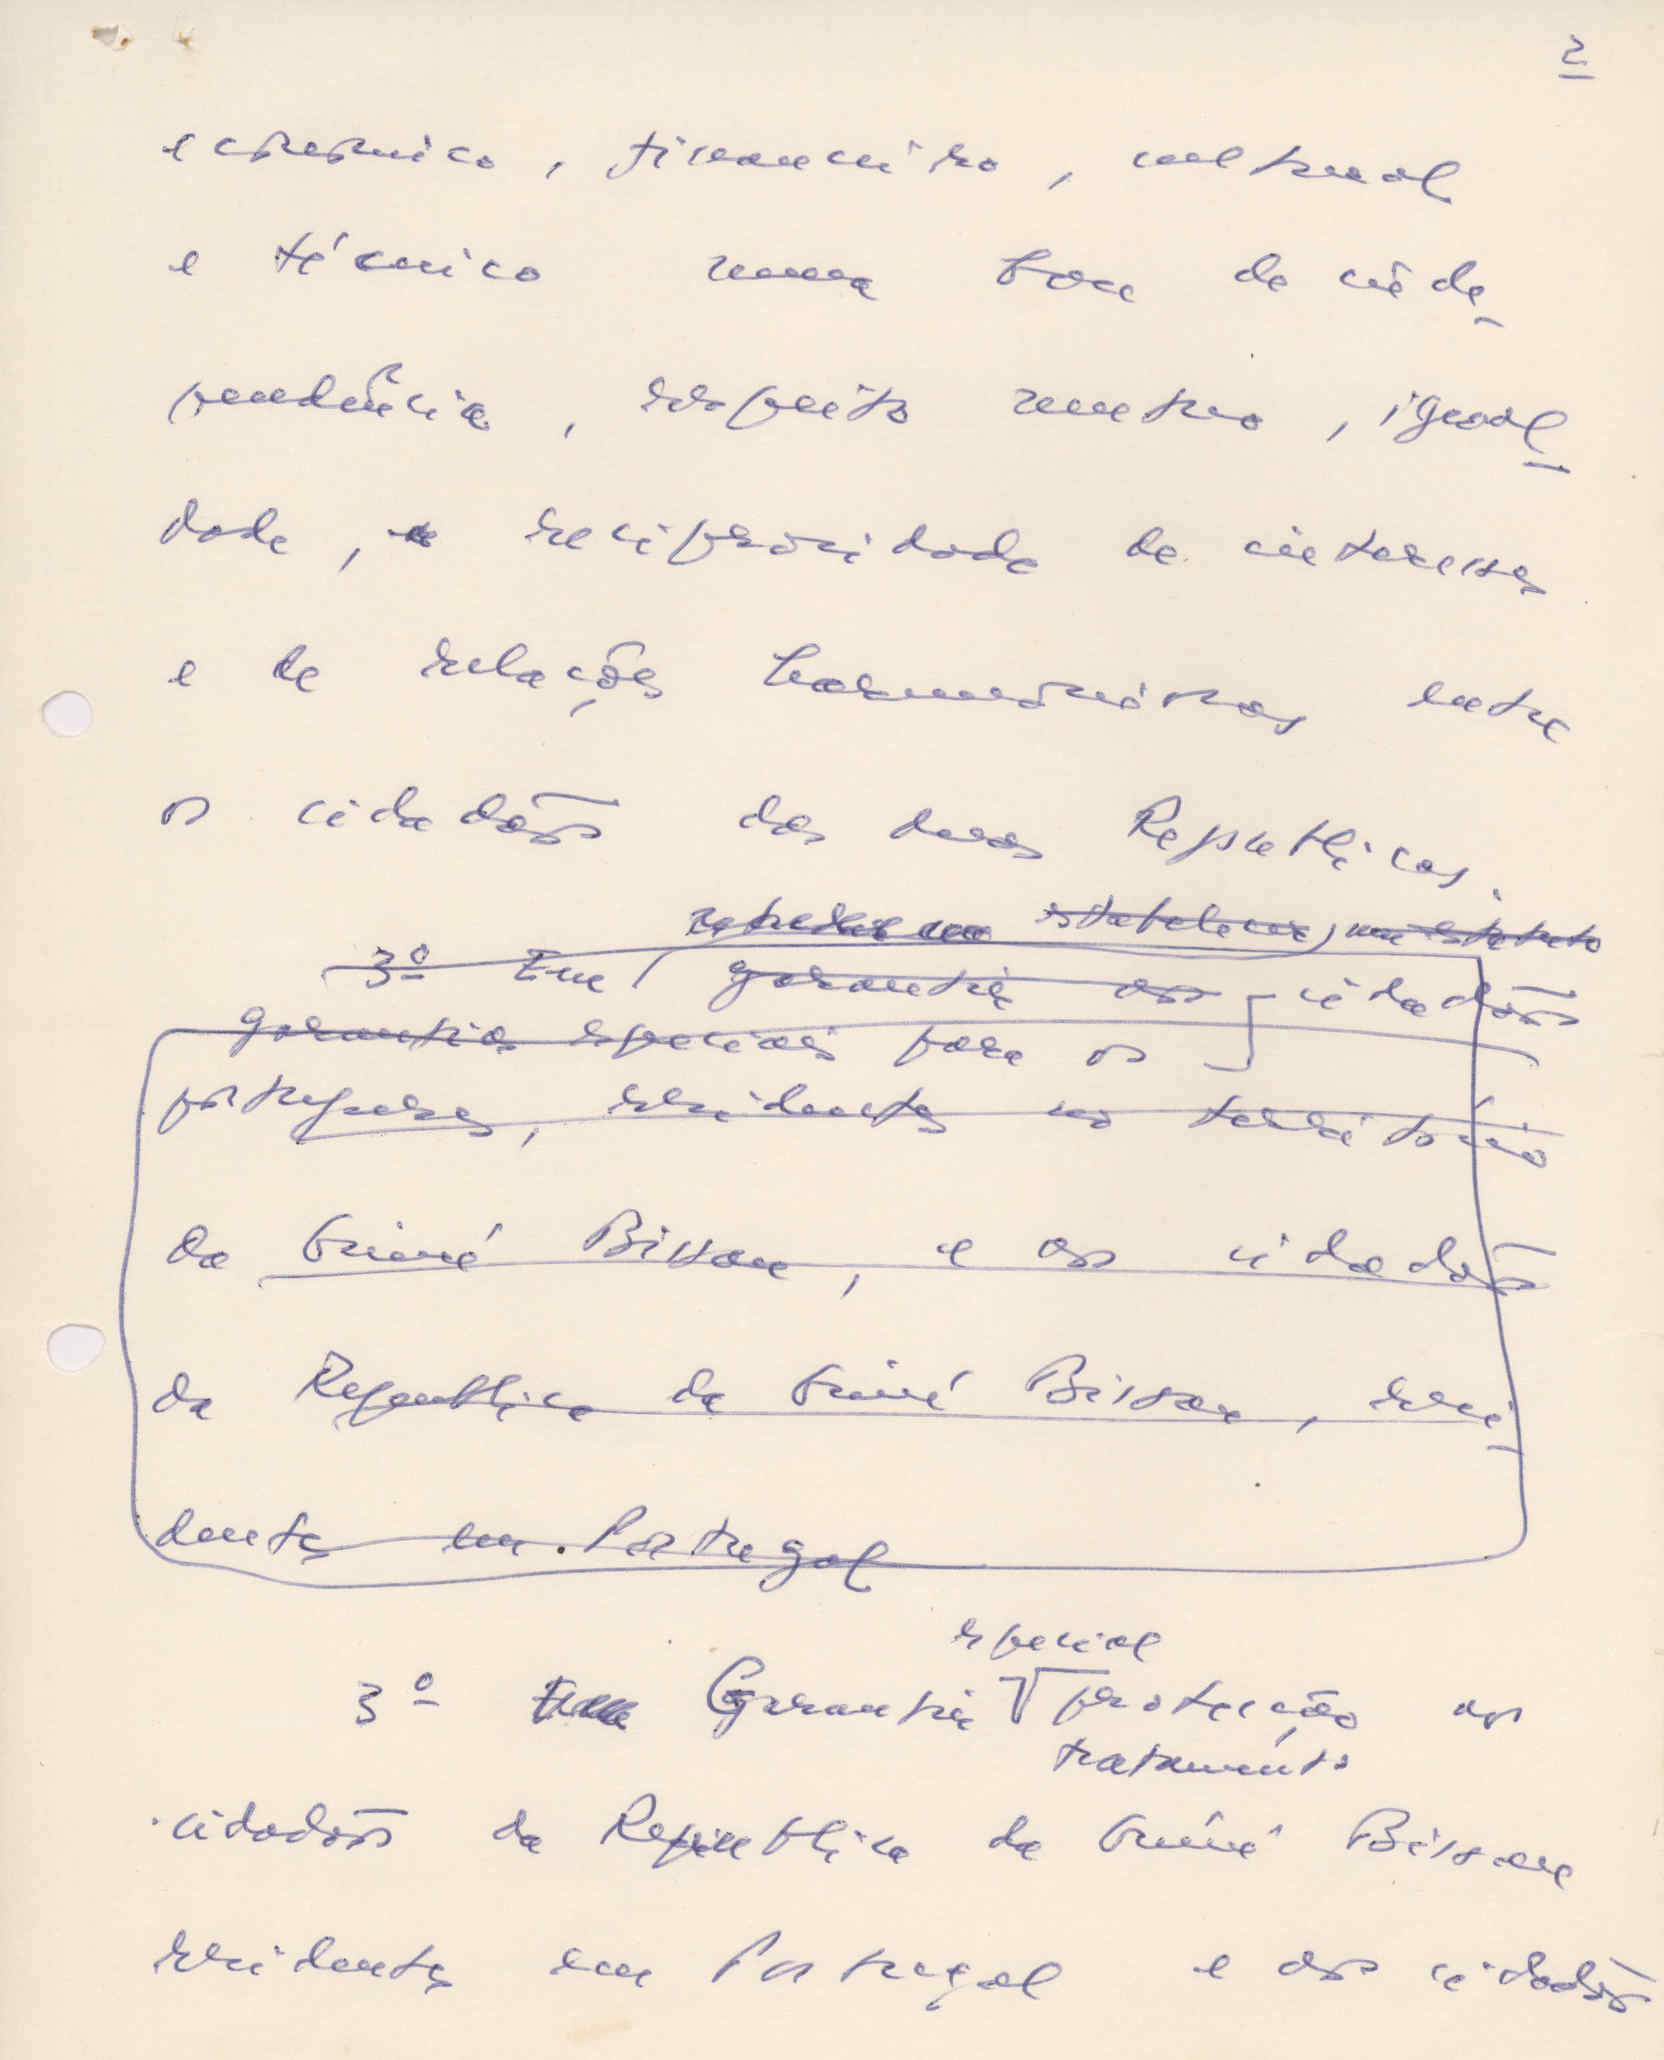 2
economico, financeiro, cultural
e técnico numa base de inde-
pendência, respeito mutuo, igual-
dade, reciprocidade de interesses
e de relações harmoniosas entre
os cidadãos das duas Republicas.
estabelecer um estatuto
3º Em garantir aos cidadãos
garantias especiais para os
portugueses, residentes no território
da Guiné Bissau, e aos cidadãos
da Republica da Guiné Bissau, resi-
dentes em Portugal
especial
3º Garantir protecção aos
tratamento
cidadãos da Republica da Guiné Bissau
residentes em Portugal e aos cidadãos